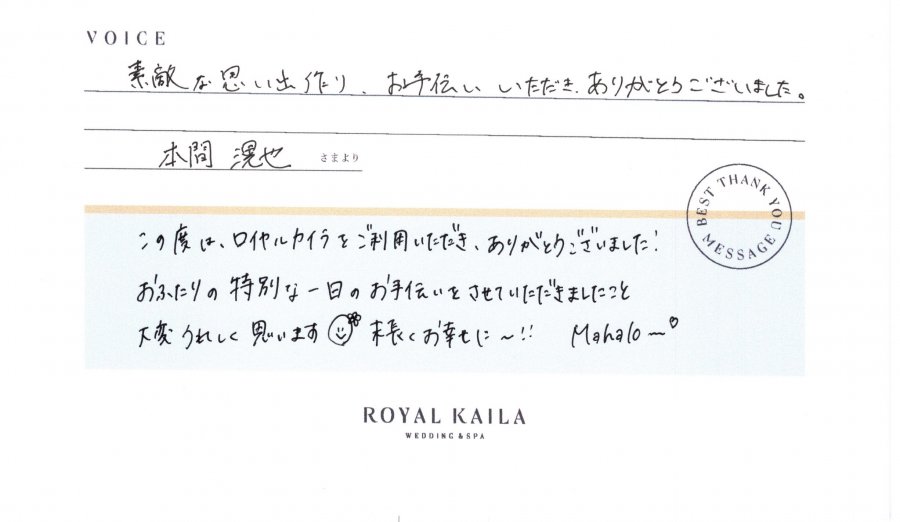 VOICE
素敵な思い出作り、お手伝いいただき、ありがとうございました。
本間 滉也 さまより
BEST THANK YOU MESSAGE
この度は、ロイヤルカイラをご利用いただき、ありがとうございました!
おふたりの特別な一日のお手伝いをさせていただきましたこと
大変うれしく思います 末長くお幸せに〜!! Mahalo〜
ROYAL KAILA
WEDDING & SPA